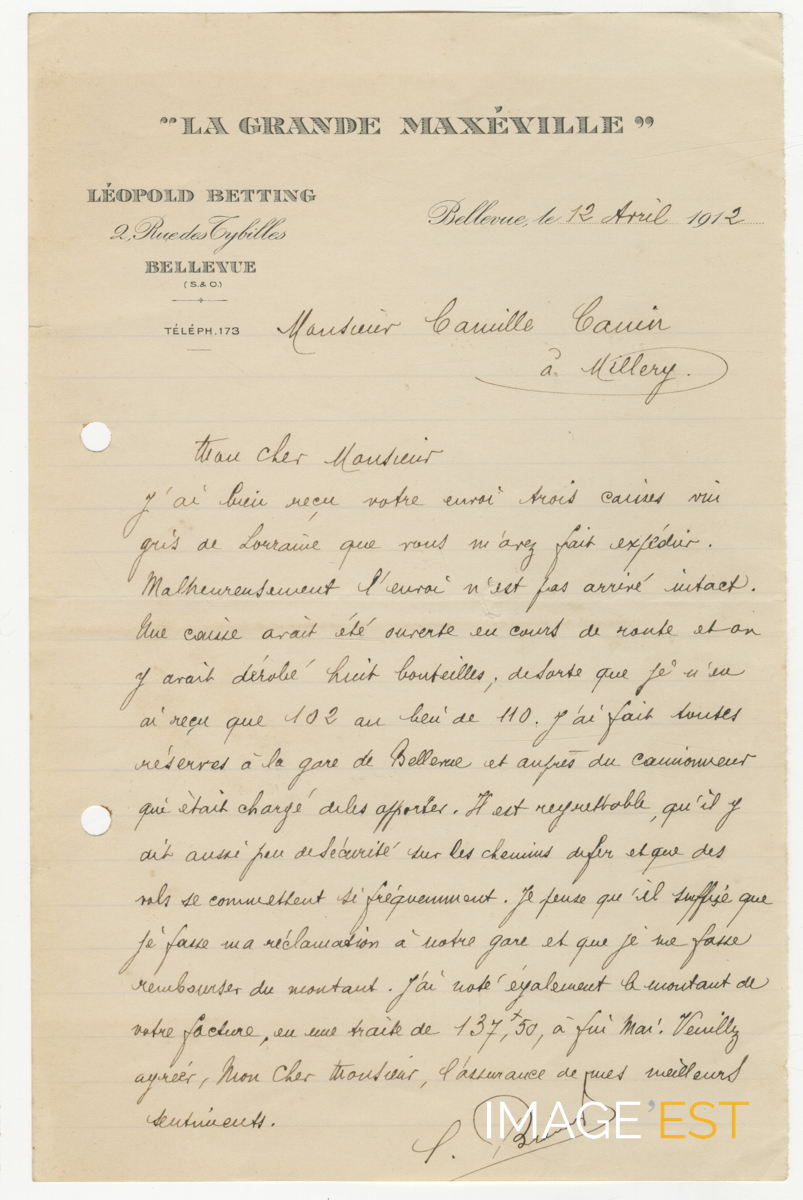 "LA GRANDE MAXÉVILLE"
LÉOPOLD BETTING
2, Rue des Tybilles
BELLEVUE
(S.&O.)
TÉLÉPH.173
Bellevue, le 12 Avril 1912
Monsieur Camille Camin
à Millery.
Mon cher Monsieur
J'ai bien reçu votre envoi trois caisses vin
gris de Lorraine que vous m'avez fait expédier.
Malheureusement l'envoi n'est pas arrivé intact.
Une caisse avait été ouverte en cours de route et on
y avait dérobé huit bouteilles, desorte que je n'en
ai reçu que 102 au lieu de 110. J'ai fait toutes
réserves à la gare de Bellevue et auprès du camionneur
qui était chargé deles apporter. Il est regrettable, qu'il y
ait aussi peu desécurité sur les chemins defer et que des
vols se commettent si fréquemment. Je pense qu'il suffise que
je fasse ma réclamation à notre gare et que je me fasse
rembourser du montant. J'ai noté également le montant de
votre facture, en une traite de 137,50, à fin Mai. Veuillez
agréer, Mon cher Monsieur, l'assurance de mes meilleurs
sentiments.
L.
IMAGE'EST